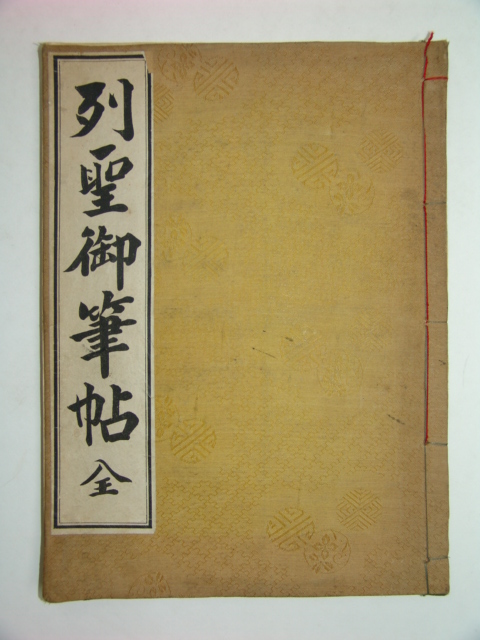 列聖御筆帖 全